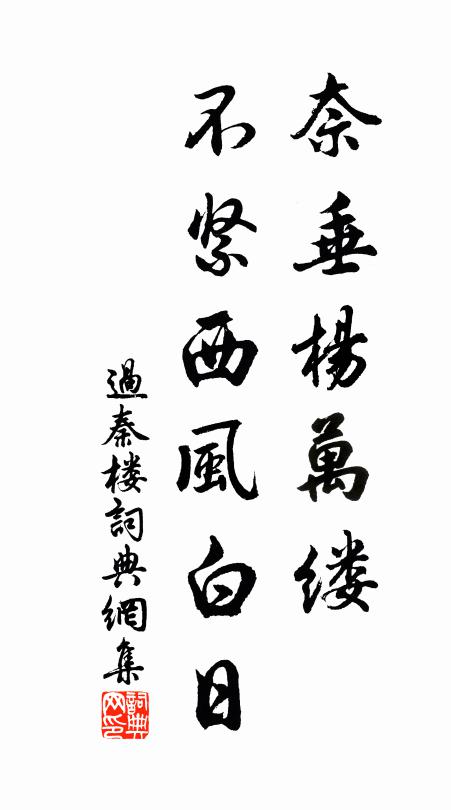 奈垂楊萬缕
不紧西風白日
過秦楼詞典網集
詞典
网印